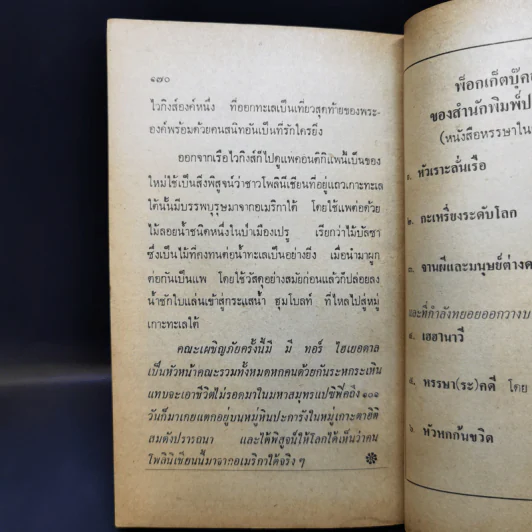 ๑๗๐
ไวกิงส์องค์หนึ่ง ที่ออกทะเลเป็นเที่ยวสุดท้ายของพระ-
องค์พร้อมด้วยคนสนิทอันเป็นที่รักใคร่ยิ่ง
ออกจากเรือไวกิงส์ก็ไปดูแพคอนติกิ แพนี้เป็นของ
ใหม่ใช้เป็นสิ่งพิสูจน์ว่าชาวโพลินีเซียนที่อยู่แถวเกาะทะเล
ใต้นั้นมีบรรพบุรุษมาจากอเมริกาใต้ โดยใช้แพต่อด้วย
ไม้ลอยน้ำชนิดหนึ่งในป่าเมืองเปรู เรียกว่าไม้บัลซา
ซึ่งเป็นไม้ที่คงทนต่อน้ำทะเลเป็นอย่างยิ่ง เมื่อนำมาผูก
ต่อกันเป็นแพ โดยใช้วัสดุอย่างสมัยก่อนแล้วก็ปล่อยลง
น้ำชักใบแล่นเข้าสู่กระแสน้ำ ฮุมโบลท์ ที่ไหลไปสู่หมู่
เกาะทะเลใต้
คณะเผชิญภัยครั้งนี้มี มี ทอร์ ไฮเยอดาล
เป็นหัวหน้าคณะรวมทั้งหมดหกคนด้วยกันระหกระเหิน
แทบจะเอาชีวิตไม่รอดมาในมหาสมุทรแปซิฟิคถึง ๑๐๑
วันก็มาเกยแตกอยู่บนหมู่หินปะการังในหมู่เกาะตาฮิติ
สมดังปรารถนา และได้พิสูจน์ให้โลกได้เห็นว่าคน
โพลินีเซียนนี้มาจากอเมริกาใต้จริง ๆ
พ็อกเก็ตบุ๊ค
ของสำนักพิมพ์ป
(หนังสือหรรษาใน
๑. หัวเราะลั่นเรือ
๒. กะเหรี่ยงระดับโลก
๓. จานผีและมนุษย์ต่างด
และที่กำลังทยอยออกวางบ
๔. เฮฮานาวี
๕. หรรษา(ระ)คดี โดย
๖. หัวหกก้นขวิด